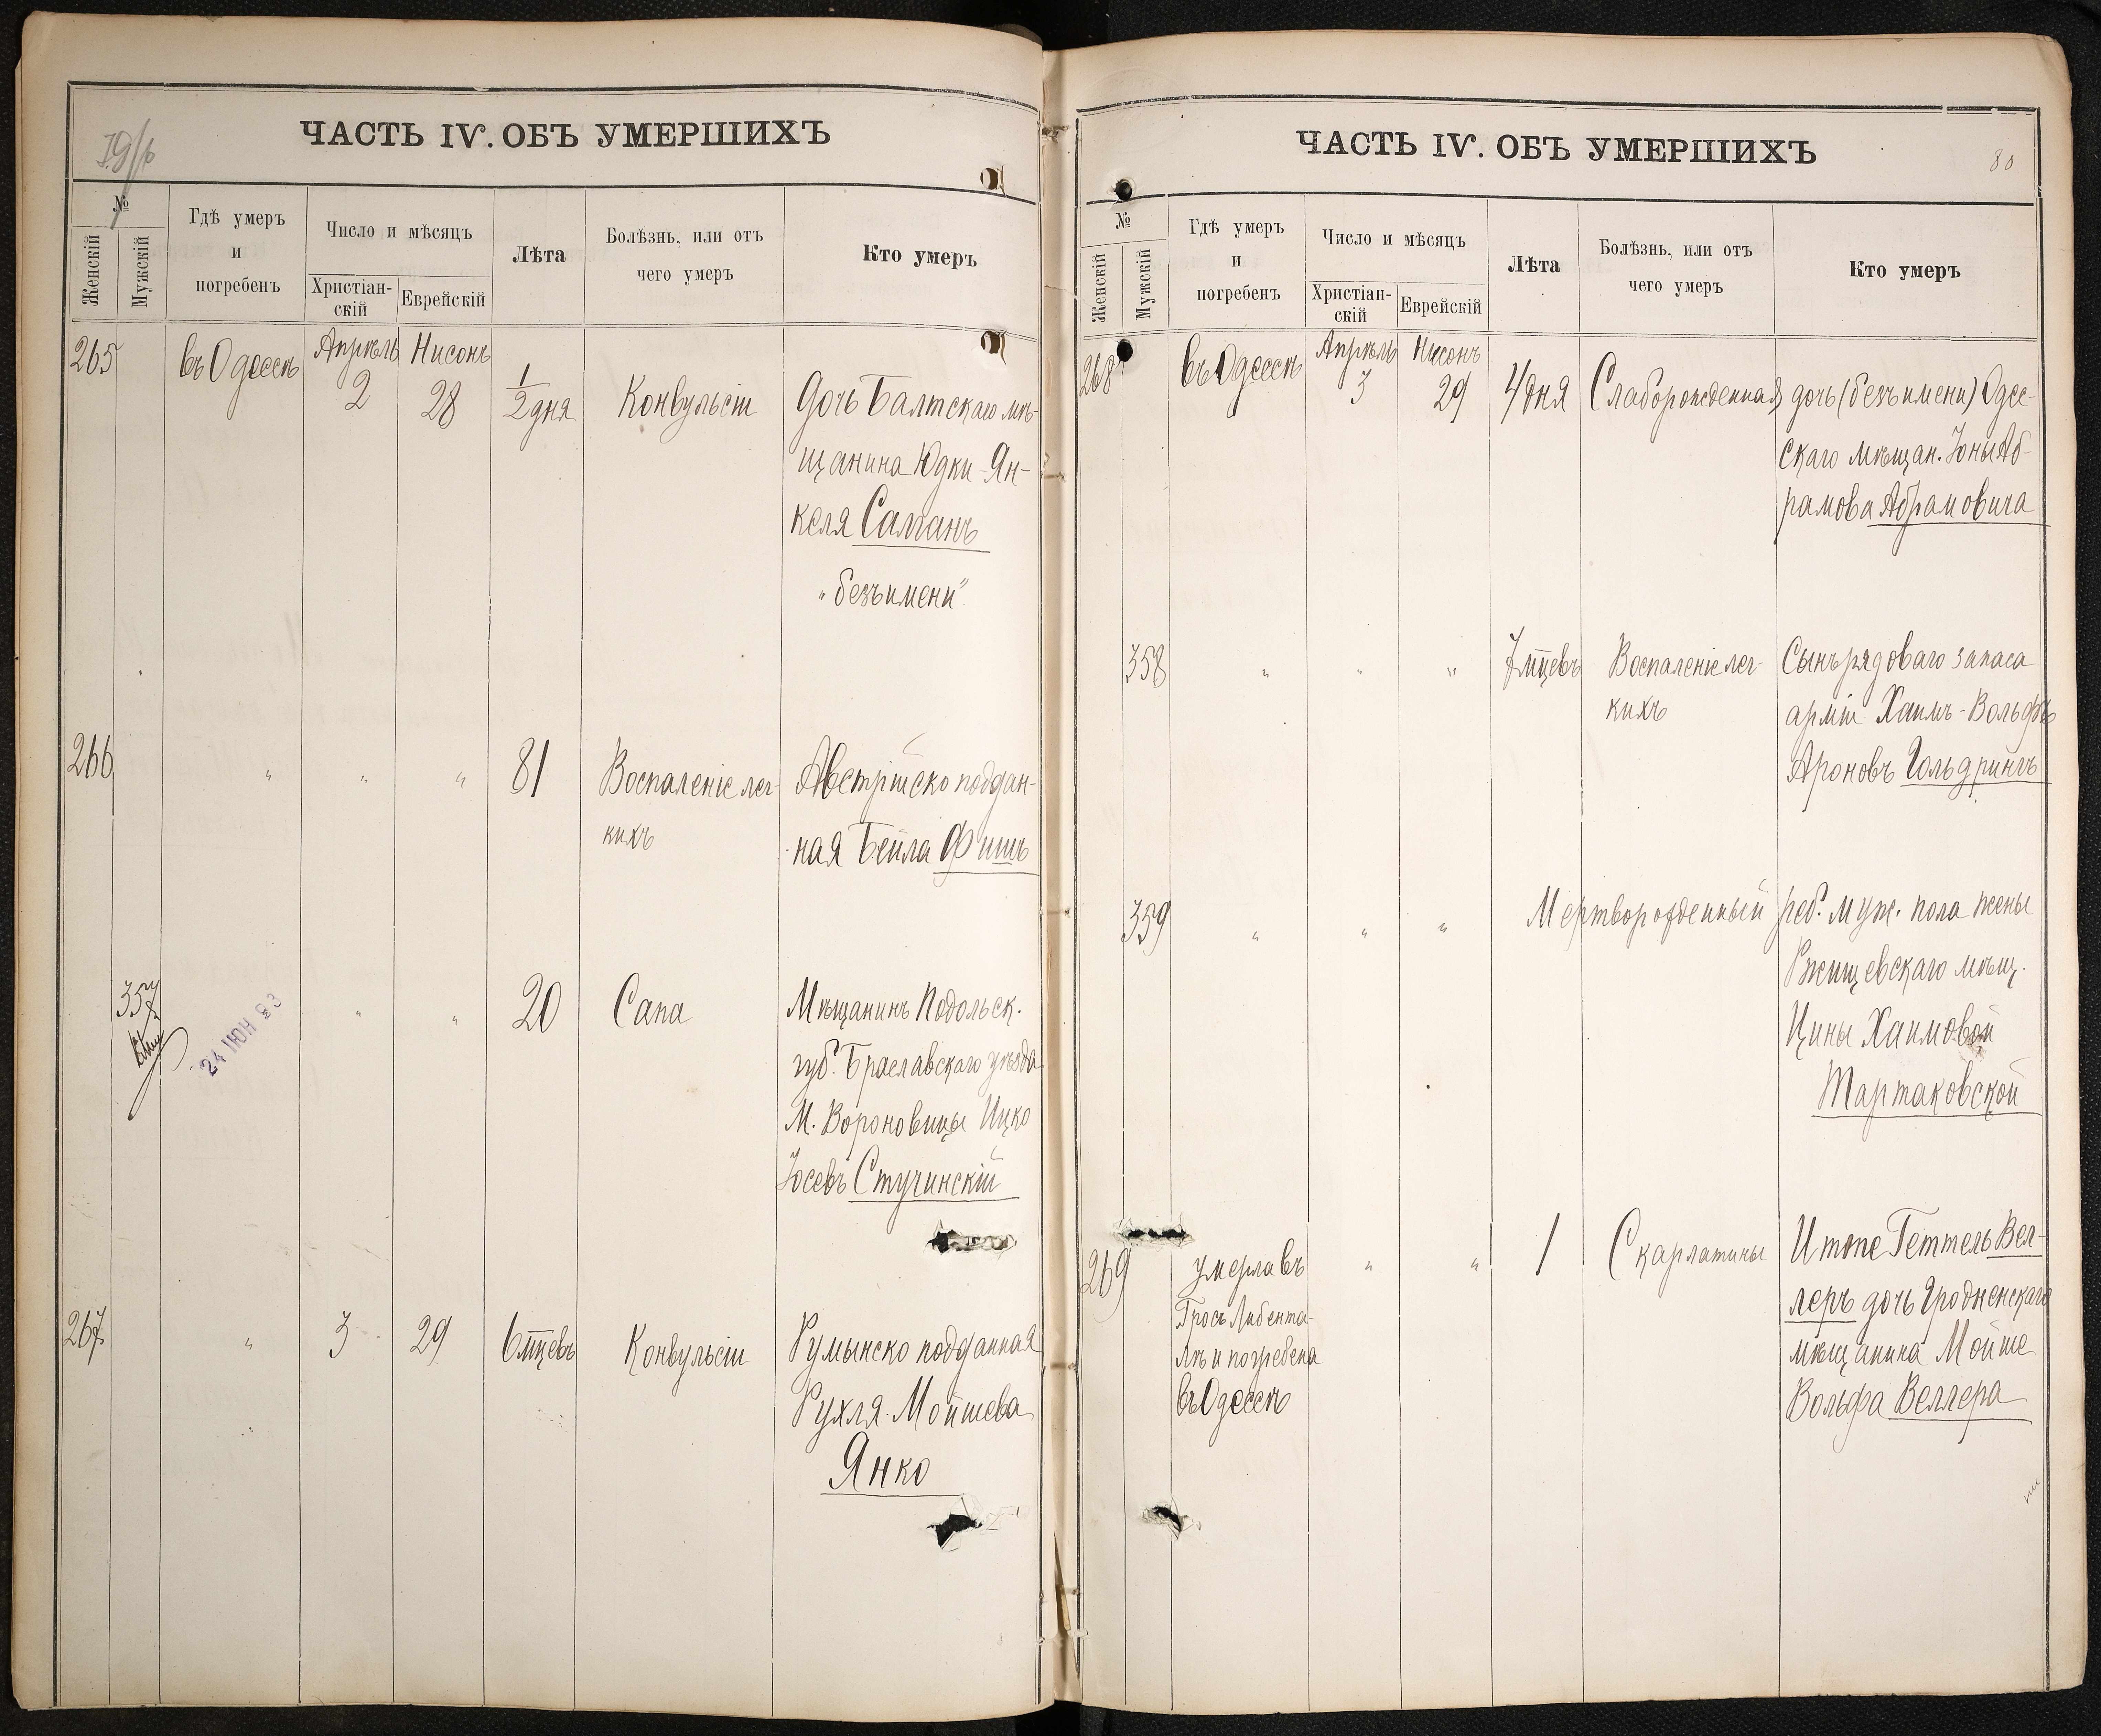 79/6
ЧАСТЬ IV. ОБЪ УМЕРШИХЪ
№
Женскій
Мужскій
Гдѣ умеръ
и
погребенъ
Число и мѣсяцъ
Христіан-
скій
Еврейскій
Лѣта
Болѣзнь, или отъ
чего умеръ
Кто умеръ
265 въ Одессѣ Апрѣль Нисонъ
2 28 1/2 дня Конвульсіи Дочь Балтскаго мѣ-
щанина Юдки-Ян-
келя
„безъ имени“
266 „ „ „ 81 Воспаленіе лег- Австрійско поддан-
кихъ ная Бейла Фишъ
357 „ „ 20 Сапа Мѣщанинъ Подольск.
24 ІЮН 93
губ. Браславскаго уѣзда
М. Вороновицы Ицко
Іосевъ Стучинскій
267 „ 3 29 6 мцевъ Конвульсіи Румынско подданная
Рухля Мойшева
Янко
ЧАСТЬ IV. ОБЪ УМЕРШИХЪ
80
№
Женскій
Мужскій
Гдѣ умеръ
и
погребенъ
Число и мѣсяцъ
Христіан-
скій
Еврейскій
Лѣта
Болѣзнь, или отъ
чего умеръ
Кто умеръ
268 въ Одессѣ Апрѣль Нисонъ
3 29 4 дня Слаборожденная дочь (безъ имени) Одес-
скаго мѣщан. Іоны Аб-
рамова Абрамовича
358 „ „ „ 7 мцевъ Воспаленіе лег- Сынъ рядоваго запаса
кихъ арміи Хаимъ-Вольфъ
Ароновъ Гольдрингъ
359 „ „ „ Мертворожденный реб. муж. пола жены
Ржищевскаго мѣщ.
Цины Хаимовой
Тартаковской
269 умерла въ „ „ 1 Скарлатины Итопе Геттель Вел-
Гросъ Либента- леръ дочь Гродненскаго
лѣ и погребена мѣщанина Мойше
въ Одессѣ Вольфа Веллера